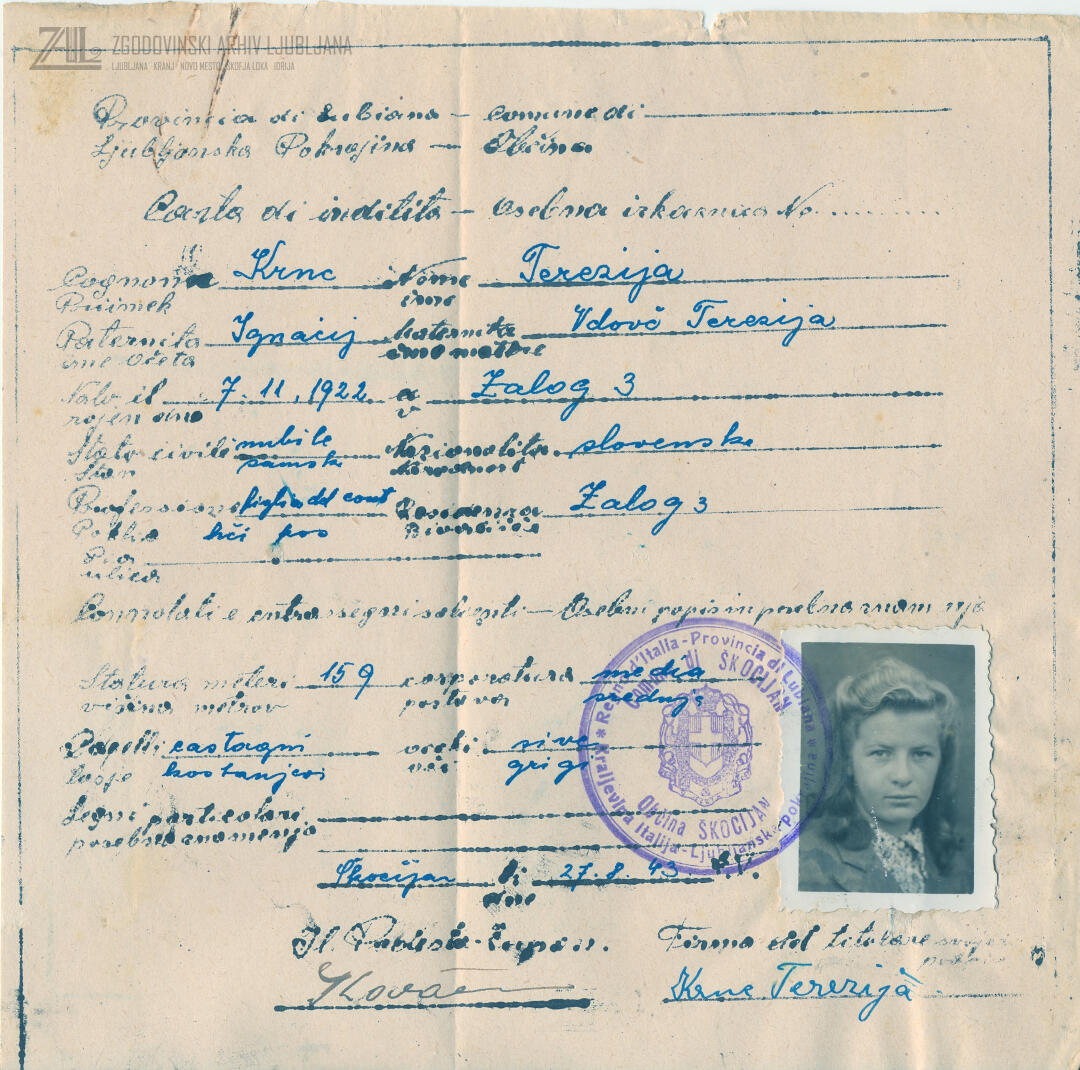 ZAL ZGODOVINSKI ARHIV LJUBLJANA
LJUBLJANA KRANJ NOVO MESTO ŠKOFJA LOKA IDRIJA
Provincia di Lubiana — Comune di
Ljubljanska Pokrajina — Občina
Carta di inditita — Osebna izkaznica No.
Cognome Krnc Nome Terezija
Priimek ime
Paternita Ignacij Maternita Vdovč Terezija
ime očeta ime mattre
Nato il 7. 11. 1922 a Zalog 3
rojen dne v
Stato civili nubile Nazionalita slovenska
Stan samska Narodnost
Professione figlia del cont Residenza Zalog 3
Poklic hči pos Bivališče
Via
ulica
Connotati e contrassegni salienti — Osebni popis in posebna znamenja
Statura meteri 159 corporatura media
višina metrov postava srednja
Capelli castagni occhi
lasje kostanjevi oči
Segni particolari
posebna znamenja
Škocijan li 27. 8. 43
dne
Il Podesta - Župan. Firma del titolare svojer.
Kovač Krnc Terezija
Regno d'Italia - Provincia di Lubiana
Comune di ŠKOCIJAN
Občina ŠKOCIJAN
Kraljevina Italija - Ljubljanska Pokrajina